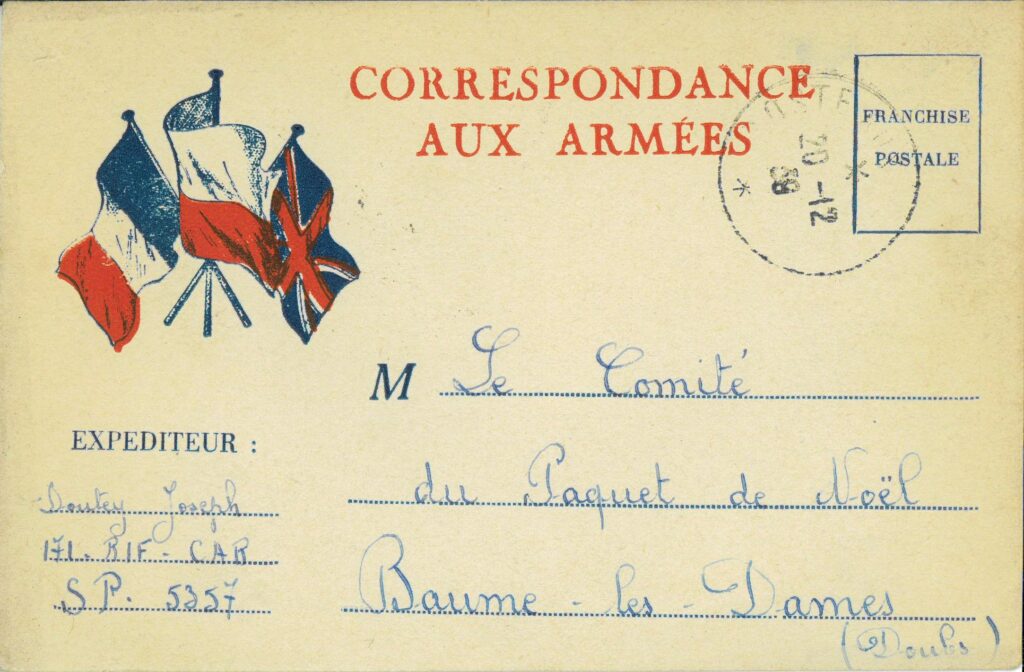 CORRESPONDANCE
AUX ARMÉES
FRANCHISE
POSTALE
20 -12
39
M Le Comité
du Paquet de Noël
Baume - les - Dames
(Doubs)
EXPEDITEUR :
Doutey Joseph
171 - RIF - CAR
SP. 5357